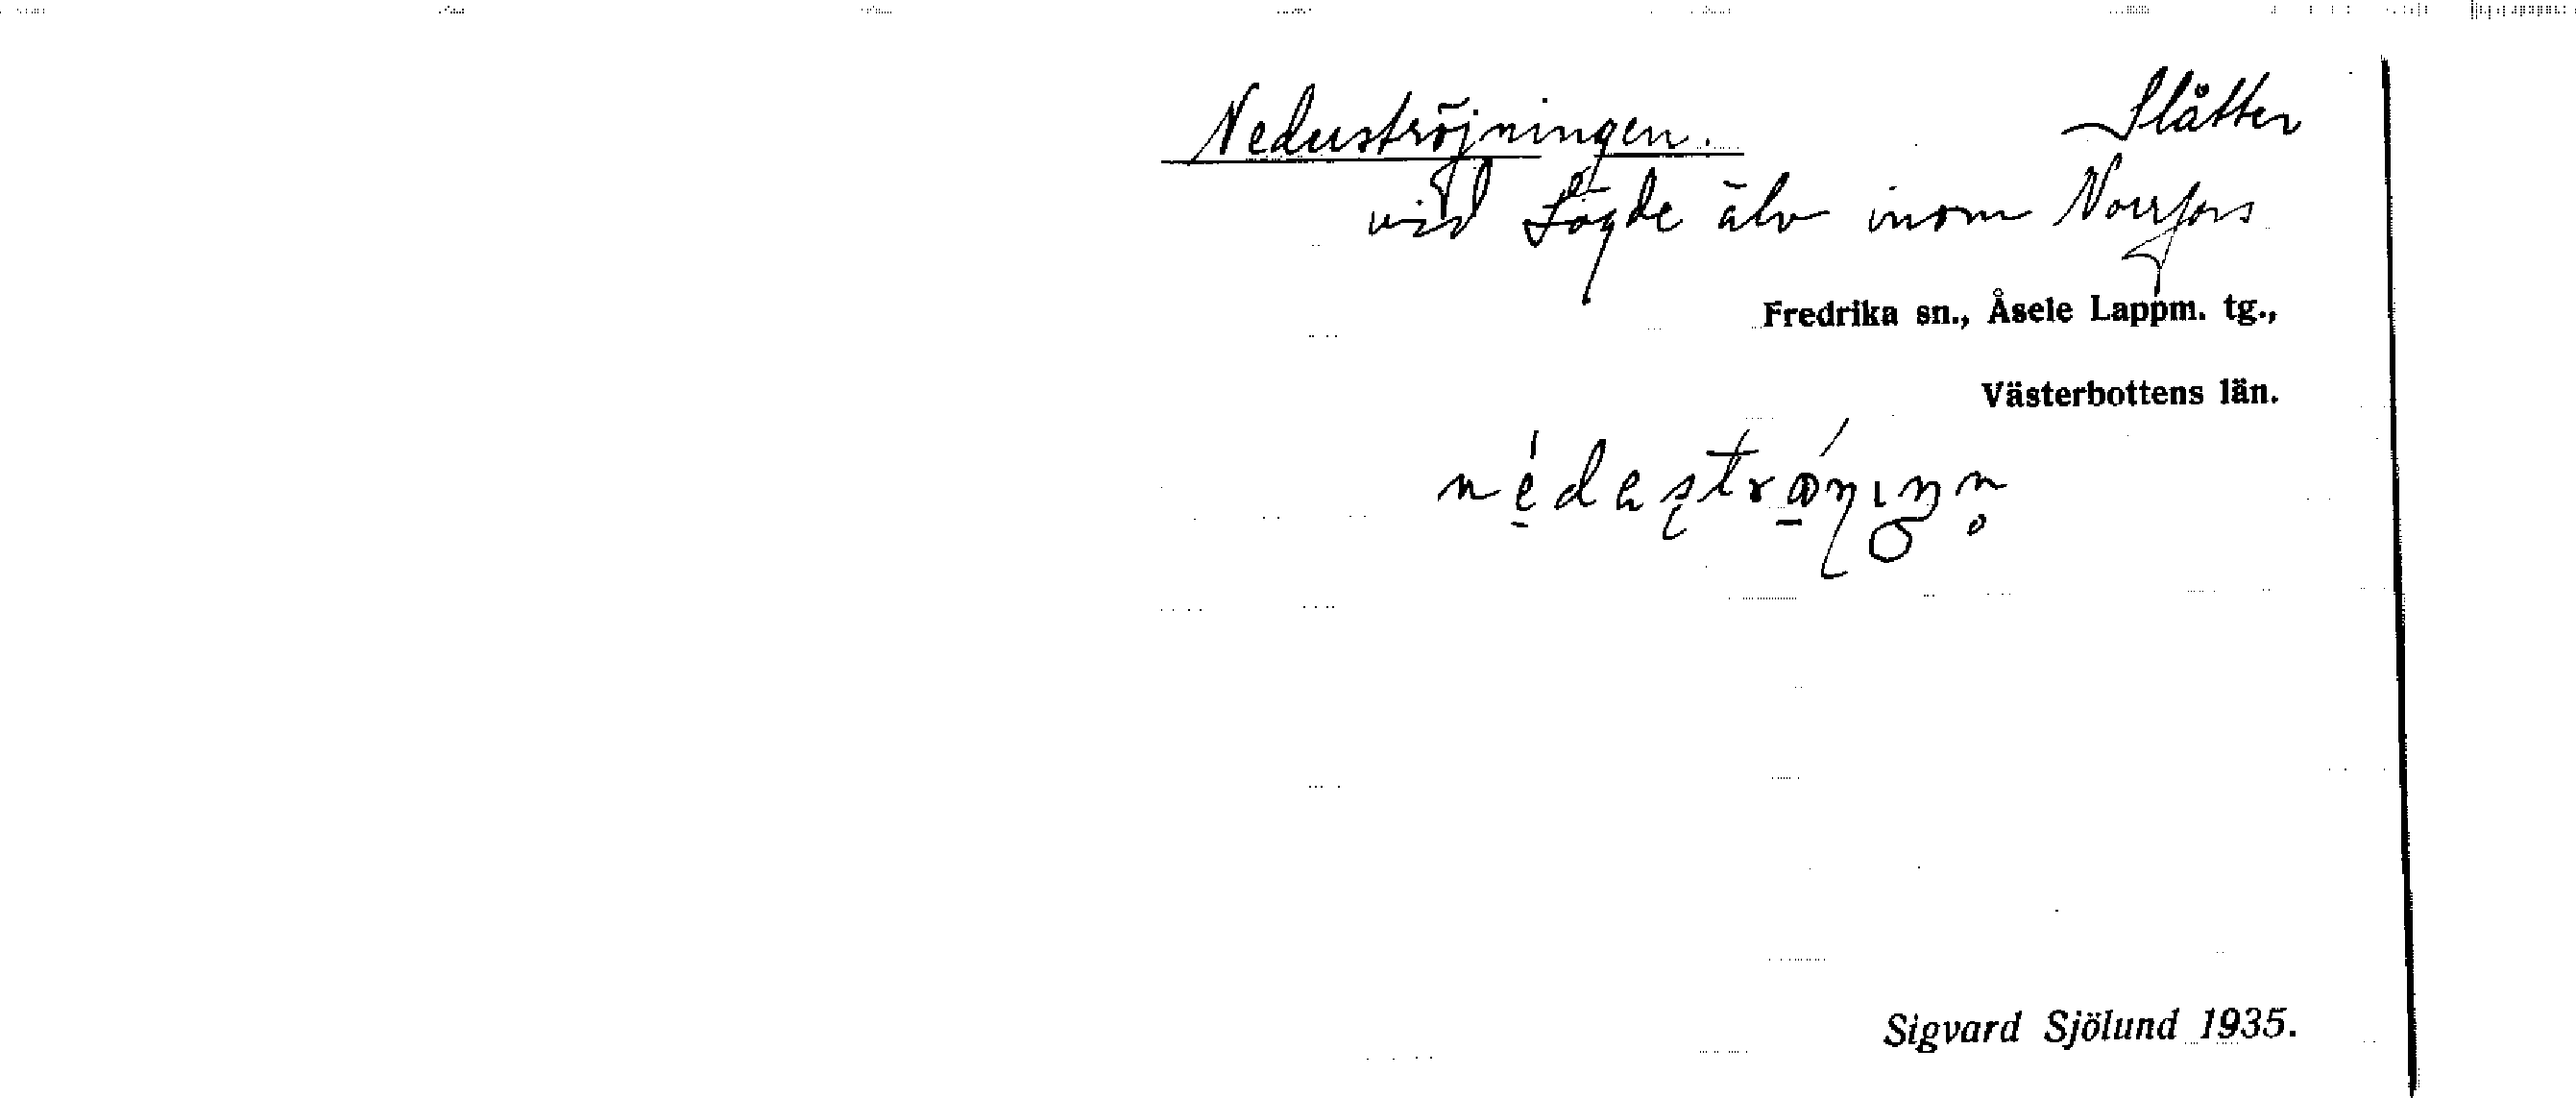 Nederströjningen. Slåtter
vid Lögde älv inom Norrfors
Fredrika sn., Åsele Lappm. tg.,
Västerbottens län.
Sigvard Sjölund 1935.